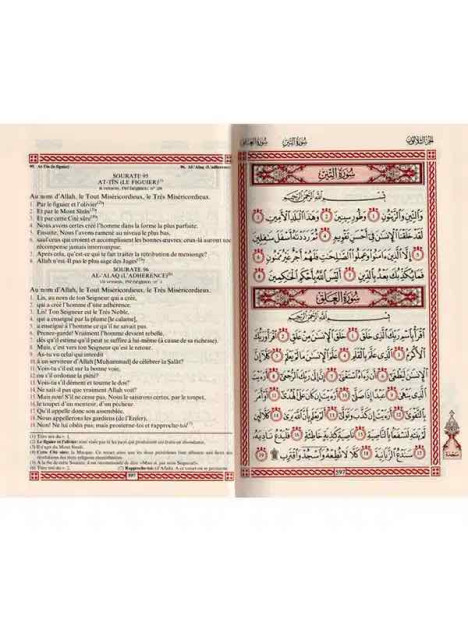 95. At-Tîn (le figuier)
SOURATE 95
AT-TÎN (LE FIGUIER)
Au nom d'Allah, le Tout Miséricordieux, le Très Miséricordieux.
1. Par le figuier et l'olivier!
2. Et par le Mont Sînîn!
3. Et par cette Cité sûre!
4. Nous avons certes créé l'homme dans la forme la plus parfaite.
5. Ensuite, Nous l'avons ramené au niveau le plus bas,
6. sauf ceux qui croient et accomplissent les bonnes œuvres: ceux-là auront une
récompense jamais interrompue.
7. Après cela, qu'est-ce qui te fait traiter la rétribution de mensonge?
8. Allah n'est-Il pas le plus sage des Juges?
SOURATE 96
AL-'ALAQ (L'ADHÉRENCE)
Au nom d'Allah, le Tout Miséricordieux, le Très Miséricordieux.
1. Lis, au nom de ton Seigneur qui a créé,
2. qui a créé l'homme d'une adhérence.
3. Lis! Ton Seigneur est le Très Noble,
4. qui a enseigné par la plume [le calame],
5. a enseigné à l'homme ce qu'il ne savait pas.
6. Prenez-garde! Vraiment l'homme devient rebelle,
7. dès qu'il estime qu'il peut se suffire à lui-même (à cause de sa richesse).
8. Mais, c'est vers ton Seigneur qu'est le retour.
9. As-tu vu celui qui interdit
10. à un serviteur d'Allah [Muhammad] de célébrer la Salât?
11. Vois-tu s'il est sur la bonne voie,
12. ou s'il ordonne la piété?
13. Vois-tu s'il dément et tourne le dos?
14. Ne sait-il pas que vraiment Allah voit?
15. Mais non! S'il ne cesse pas, Nous le saisirons certes, par le toupet,
16. le toupet d'un menteur, d'un pécheur.
17. Qu'il appelle donc son assemblée.
18. Nous appellerons les gardiens (de l'Enfer).
19. Non! Ne lui obéis pas; mais prosterne-toi et rapproche-toi
597
سورة العلق
سورة التين
الجزء الثلاثون
سورة التين
بسم الله الرحمن الرحيم
والتين والزيتون ١ وطور سينين ٢ وهذا البلد الأمين ٣
لقد خلقنا الإنسن في أحسن تقويم ٤ ثم رددنه أسفل سفلين
٥ إلا الذين ءامنوا وعملوا الصلحت فلهم أجر غير ممنون ٦
فما يكذبك بعد بالدين ٧ أليس الله بأحكم الحكمين ٨
سورة العلق
بسم الله الرحمن الرحيم
اقرأ باسم ربك الذي خلق ١ خلق الإنسن من علق ٢ اقرأ وربك
الأكرم ٣ الذي علم بالقلم ٤ علم الإنسن ما لم يعلم ٥ كلا إن
الإنسن ليطغى ٦ أن رءاه استغنى ٧ إن إلى ربك الرجعى ٨ أرءيت
الذي ينهى ٩ عبدا إذا صلى ١٠ أرءيت إن كان على الهدى ١١ أو أمر
بالتقوى ١٢ أرءيت إن كذب وتولى ١٣ ألم يعلم بأن الله يرى ١٤ كلا لئن
لم ينته لنسفعا بالناصية ١٥ ناصية كذبة خاطئة ١٦ فليدع ناديه ١٧
سندع الزبانية ١٨ كلا لا تطعه واسجد واقترب ١٩
٥٩٧